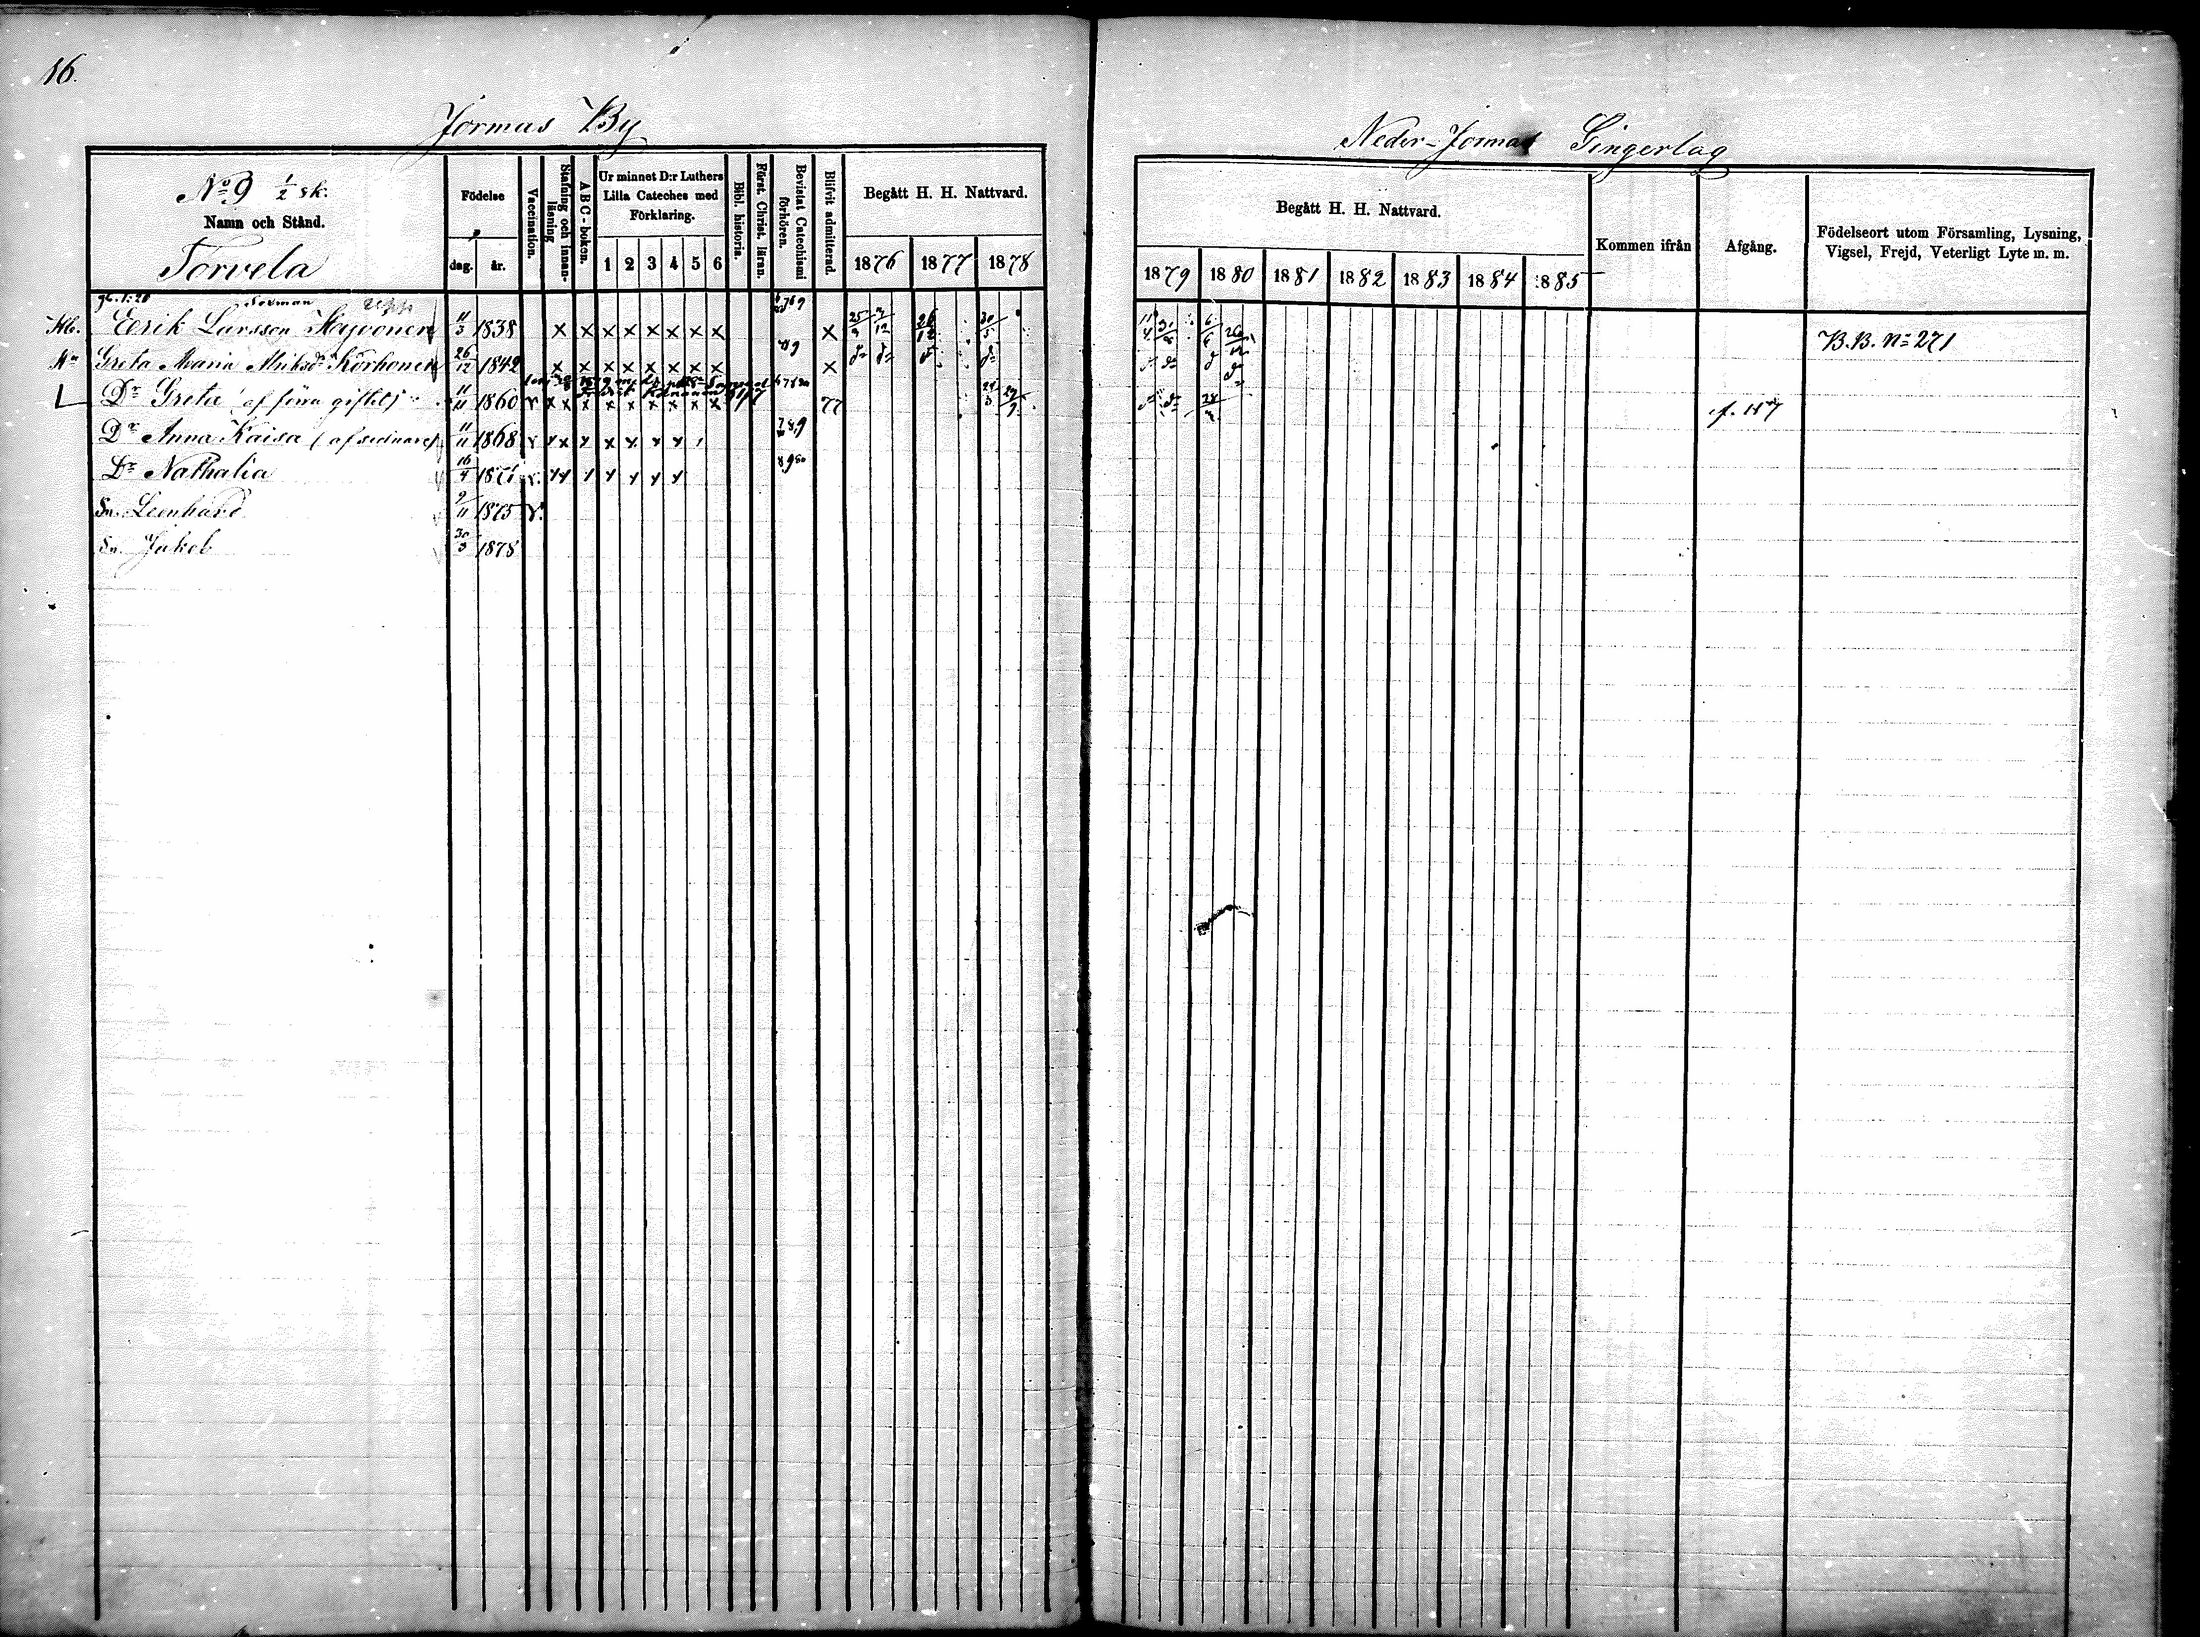 16.
Jormas By
Neder-Jormas Gingerlag
No 9 1/2 sk.
Namn och Stånd.
Torvela
Födelse
dag.
år.
Vaccination.
Stafning och innanläsning
ABC-boken.
Ur minnet D:r Luthers Lilla Cateches med Förklaring.
1 2 3 4 5 6
Bibl. historia.
Först. Christ. läran.
Bevistat Catechismi förhören.
Blifvit admitterad.
Begått H. H. Nattvard.
1876 1877 1878
Begått H. H. Nattvard.
1879 1880 1881 1882 1883 1884 1885
Kommen ifrån
Afgång.
Födelseort utom Församling, Lysning, Vigsel, Frejd, Veterligt Lyte m. m.
Eerik Larsson 11/3 1838 × × × × × × × × × 25/3 2/12 B.B. No 271
Greta Maria Korhonen 26/12 1842 × × × × × × × × ×
Dr Greta (af förra giftet) 11/11 1860 77 f. 117
Dr Anna Kaisa (af sednare) 11/11 1868
Dr Nathalia 16/4 1871
Sn Leenhard 9/11 1875 v.
Sn Jakob 30/3 1878